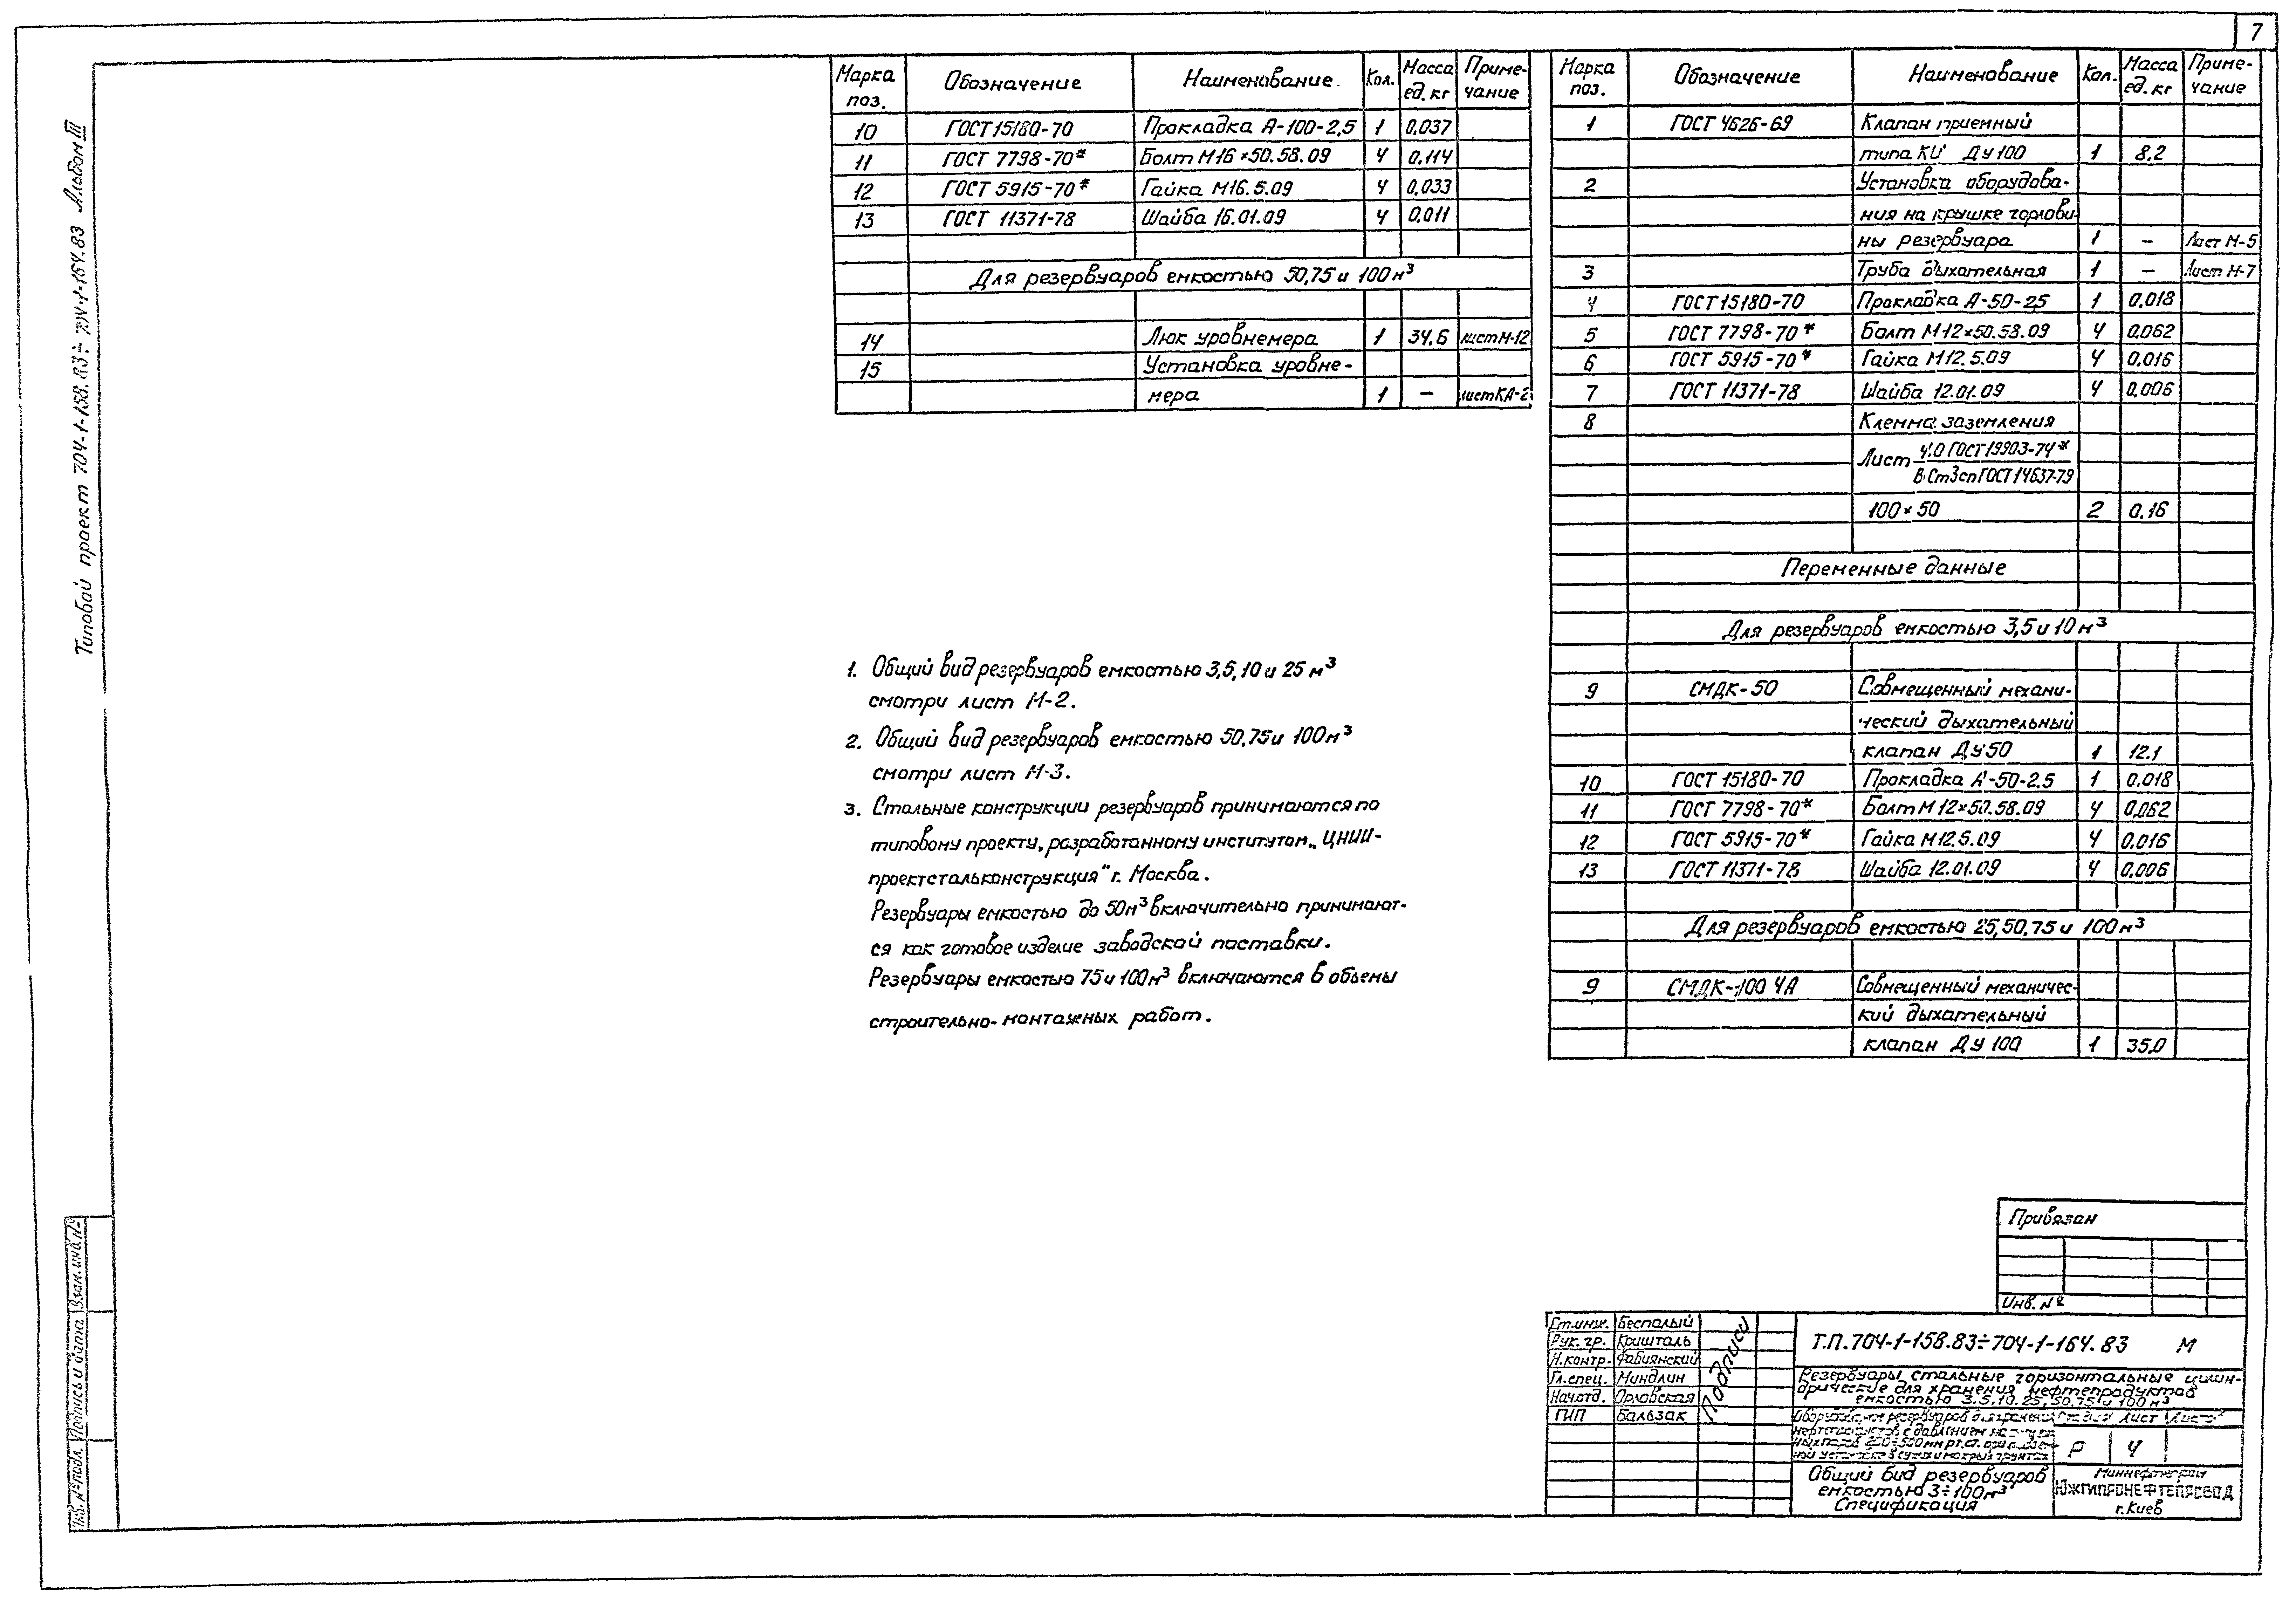 7
Типовой проект 704-1-158.83÷704-1-164.83 Альбом III
Марка поз. Обозначение Наименование Кол. Масса ед. кг Примечание
10 ГОСТ 15180-70 Прокладка А-100-2,5 1 0,037
11 ГОСТ 7798-70* Болт М16×50.58.09 4 0,114
12 ГОСТ 5915-70* Гайка М16.5.09 4 0,033
13 ГОСТ 11371-78 Шайба 16.01.09 4 0,011
Для резервуаров емкостью 50,75 и 100 м³
14 Люк уровнемера 1 34,6 лист М-12
15 Установка уровне-
мера 1 — лист КА-2
1. Общий вид резервуаров емкостью 3,5,10 и 25 м³
смотри лист М-2.
2. Общий вид резервуаров емкостью 50,75 и 100 м³
смотри лист М-3.
3. Стальные конструкции резервуаров принимаются по
типовому проекту, разработанному институтом „ЦНИИ-
проектстальконструкция" г. Москва.
Резервуары емкостью до 50 м³ включительно принимают-
ся как готовое изделие заводской поставки.
Резервуары емкостью 75 и 100 м³ включаются в объемы
строительно-монтажных работ.
Марка поз. Обозначение Наименование Кол. Масса ед. кг Примечание
1 ГОСТ 4626-69 Клапан приемный
типа КП ДУ 100 1 8,2
2 Установка оборудова-
ния на крышке горлови-
ны резервуара 1 — Лист М-5
3 Труба дыхательная 1 — Лист М-7
4 ГОСТ 15180-70 Прокладка А-50-2,5 1 0,018
5 ГОСТ 7798-70* Болт М12×50.58.09 4 0,062
6 ГОСТ 5915-70* Гайка М12.5.09 4 0,016
7 ГОСТ 11371-78 Шайба 12.01.09 4 0,006
8 Клемма заземления
Лист 4,0 ГОСТ 19903-74*
В Ст3сп ГОСТ 14637-79
100×50 2 0,16
Переменные данные
Для резервуаров емкостью 3,5 и 10 м³
9 СМДК-50 Совмещенный механи-
ческий дыхательный
клапан ДУ 50 1 12,1
10 ГОСТ 15180-70 Прокладка А-50-2,5 1 0,018
11 ГОСТ 7798-70* Болт М12×50.58.09 4 0,062
12 ГОСТ 5915-70* Гайка М12.5.09 4 0,016
13 ГОСТ 11371-78 Шайба 12.01.09 4 0,006
Для резервуаров емкостью 25,50,75 и 100 м³
9 СМДК-100 ЧА Совмещенный механичес-
кий дыхательный
клапан ДУ 100 1 35,0
Привязан
Инв. №
Ст.инж. Беспалый
Рук. гр. Кришталь
Н.контр. Фабиянский
Гл.спец. Миндлин
Нач.отд. Орловская
ГИП Бальзак
Подписи
Т.П. 704-1-158.83÷704-1-164.83 М
Резервуары стальные горизонтальные цилин-
дрические для хранения нефтепродуктов
емкостью 3,5,10,25,50,75 и 100 м³
Оборудование резервуаров для хранения
нефтепродуктов с давлением насыщен-
Стадия Лист Листов
Р 4
Общий вид резервуаров
емкостью 3÷100м³
Спецификация
Миннефтегаз
ЮЖГИПРОНЕФТЕПРОВОД
г. Киев
Инв. № подл. Подпись и дата Взам. инв. №